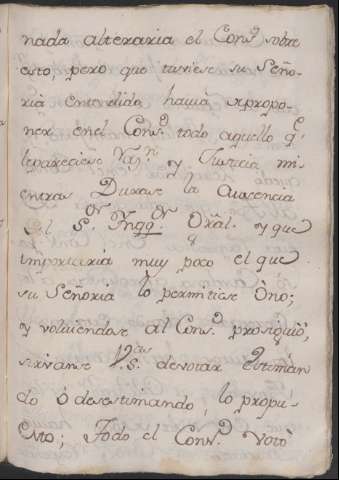 nada alteraria el Cons.º sobre
esto, pero que tuviese su Seño-
ria entendido havia propo-
ner en el Cons.º todo aquello q.e
le pareciese Vag.n y Justicia mi-
entras Durase la Ausencia
del S.or Ynqq.or Gral. y que
importaria muy poco el que
su Señoria lo permitiese Ono;
y volviendose al Cons.º prosiguió,
sirvanse V.S.as devotar Estiman
do ó desestimando, lo propu-
esto; Todo el Cons.º Votó